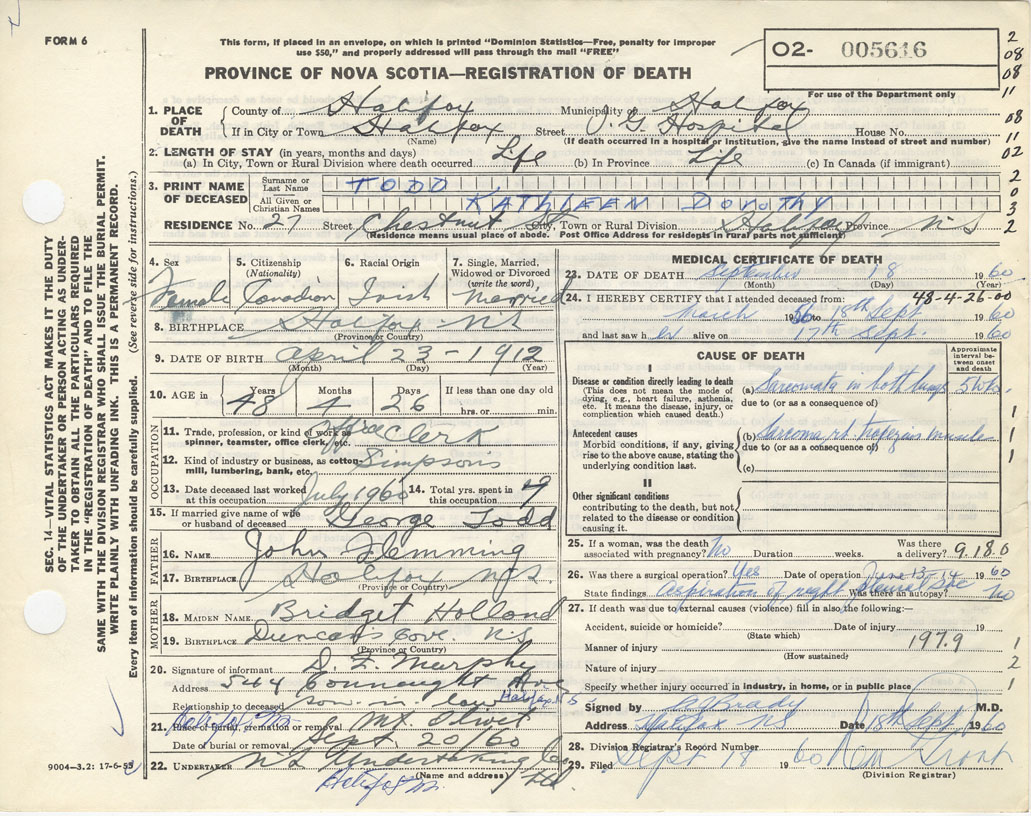 FORM 6
This form, if placed in an envelope, on which is printed "Dominion Statistics—Free, penalty for improper
use $50," and properly addressed will pass through the mail "FREE"
O2- 005616
For use of the Department only
2
08
08
11
08
11
02
2
0
3
2
PROVINCE OF NOVA SCOTIA—REGISTRATION OF DEATH
1. PLACE OF DEATH
County of Halifax Municipality of Halifax
If in City or Town Halifax Street V. G. Hospital House No.
(Name) (If death occurred in a hospital or institution, give the name instead of street and number)
2. LENGTH OF STAY (in years, months and days)
(a) In City, Town or Rural Division where death occurred Life (b) In Province Life (c) In Canada (if immigrant)
3. PRINT NAME OF DECEASED
Surname or Last Name TODD
All Given or Christian Names KATHLEEN DOROTHY
RESIDENCE No. 27 Street Chestnut St. City, Town or Rural Division Halifax Province N S
(Residence means usual place of abode. Post Office Address for residents in rural parts not sufficient)
4. Sex Female
5. Citizenship (Nationality) Canadian
6. Racial Origin Irish
7. Single, Married, Widowed or Divorced (write the word) Married
8. BIRTHPLACE Halifax N S
(Province or Country)
9. DATE OF BIRTH April 23 - 1912
(Month) (Day) (Year)
10. AGE in Years 48 Months 4 Days 26 If less than one day old hrs. or min.
OCCUPATION
11. Trade, profession, or kind of work as spinner, teamster, office clerk, etc. Office Clerk
12. Kind of industry or business, as cotton-mill, lumbering, bank, etc. Simpsons
13. Date deceased last worked at this occupation July 1960 14. Total yrs. spent in this occupation 9
15. If married give name of wife or husband of deceased George Todd
FATHER
16. NAME John Flemming
17. BIRTHPLACE Halifax N.S.
(Province or Country)
MOTHER
18. MAIDEN NAME Bridget Holland
19. BIRTHPLACE Duncans Cove. N.S
(Province or Country)
20. Signature of informant D. F. Murphy
Address 544 Connaught Ave Halifax N S
Relationship to deceased son-in-law
21. Place of burial, cremation or removal Mt. Olivet
Date of burial or removal Sept. 20/60
22. UNDERTAKER N S Undertaking Co Ltd.
(Name and address)
MEDICAL CERTIFICATE OF DEATH
23. DATE OF DEATH September 18 1960
(Month) (Day) (Year)
24. I HEREBY CERTIFY that I attended deceased from: 48-4-26-00
March 1960 to 18th Sept 1960
and last saw her alive on 17th Sept. 1960
CAUSE OF DEATH
Approximate interval between onset and death
I
Disease or condition directly leading to death
(This does not mean the mode of dying, e.g., heart failure, asthenia, etc. It means the disease, injury, or complication which caused death.)
(a) Sarcomata in both lungs 5 wks.
due to (or as a consequence of)
Antecedent causes
Morbid conditions, if any, giving rise to the above cause, stating the underlying condition last.
(b) Sarcoma rt trapezius muscle
due to (or as a consequence of)
(c)
II
Other significant conditions
contributing to the death, but not related to the disease or condition causing it.
1
1
1
1
25. If a woman, was the death associated with pregnancy? No Duration weeks. Was there a delivery? 9.18.0
26. Was there a surgical operation? Yes Date of operation June 13-14 1960
State findings Aspiration of right Was there an autopsy? No
27. If death was due to external causes (violence) fill in also the following:—
Accident, suicide or homicide? Date of injury 19
(State which)
Manner of injury 197.9 1
(How sustained)
Nature of injury 2
Specify whether injury occurred in industry, in home, or in public place 1
Signed by Brady M.D.
Address Halifax NS Date 18th Sept 1960
28. Division Registrar's Record Number
29. Filed Sept 18 1960
(Division Registrar)
SEC. 14—VITAL STATISTICS ACT MAKES IT THE DUTY
OF THE UNDERTAKER OR PERSON ACTING AS UNDER-
TAKER TO OBTAIN ALL THE PARTICULARS REQUIRED
IN THE "REGISTRATION OF DEATH" AND TO FILE THE
SAME WITH THE DIVISION REGISTRAR WHO SHALL ISSUE THE BURIAL PERMIT.
WRITE PLAINLY WITH UNFADING INK. THIS IS A PERMANENT RECORD.
Every item of information should be carefully supplied. (See reverse side for instructions.)
9004—3.2: 17-6-55